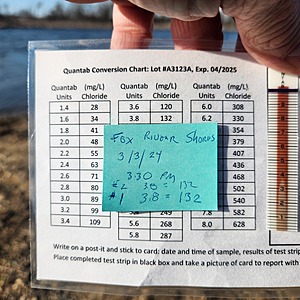 Quantab Conversion Chart: Lot #A3123A, Exp. 04/2025
Quantab Units (mg/L) Chloride Quantab Units (mg/L) Chloride Quantab Units (mg/L) Chloride
1.4 28 3.6 120 6.0 308
1.6 34 3.8 132 6.2
1.8 41 354
2.0 48 379
2.2 55 407
2.4 63 436
2.6 71 468
2.8 80 502
3.0 89 540
3.2 99 247 7.8 582
3.4 109 5.6 268 8.0 628
5.8 287
Fox River Shores
3/3/24
3:30 PM
#2 3.8 = 132
#1 3.8 = 132
Write on a post-it and stick to card: date and time of sample, results of test strip
Place completed test strip in black box and take a picture of card to report with